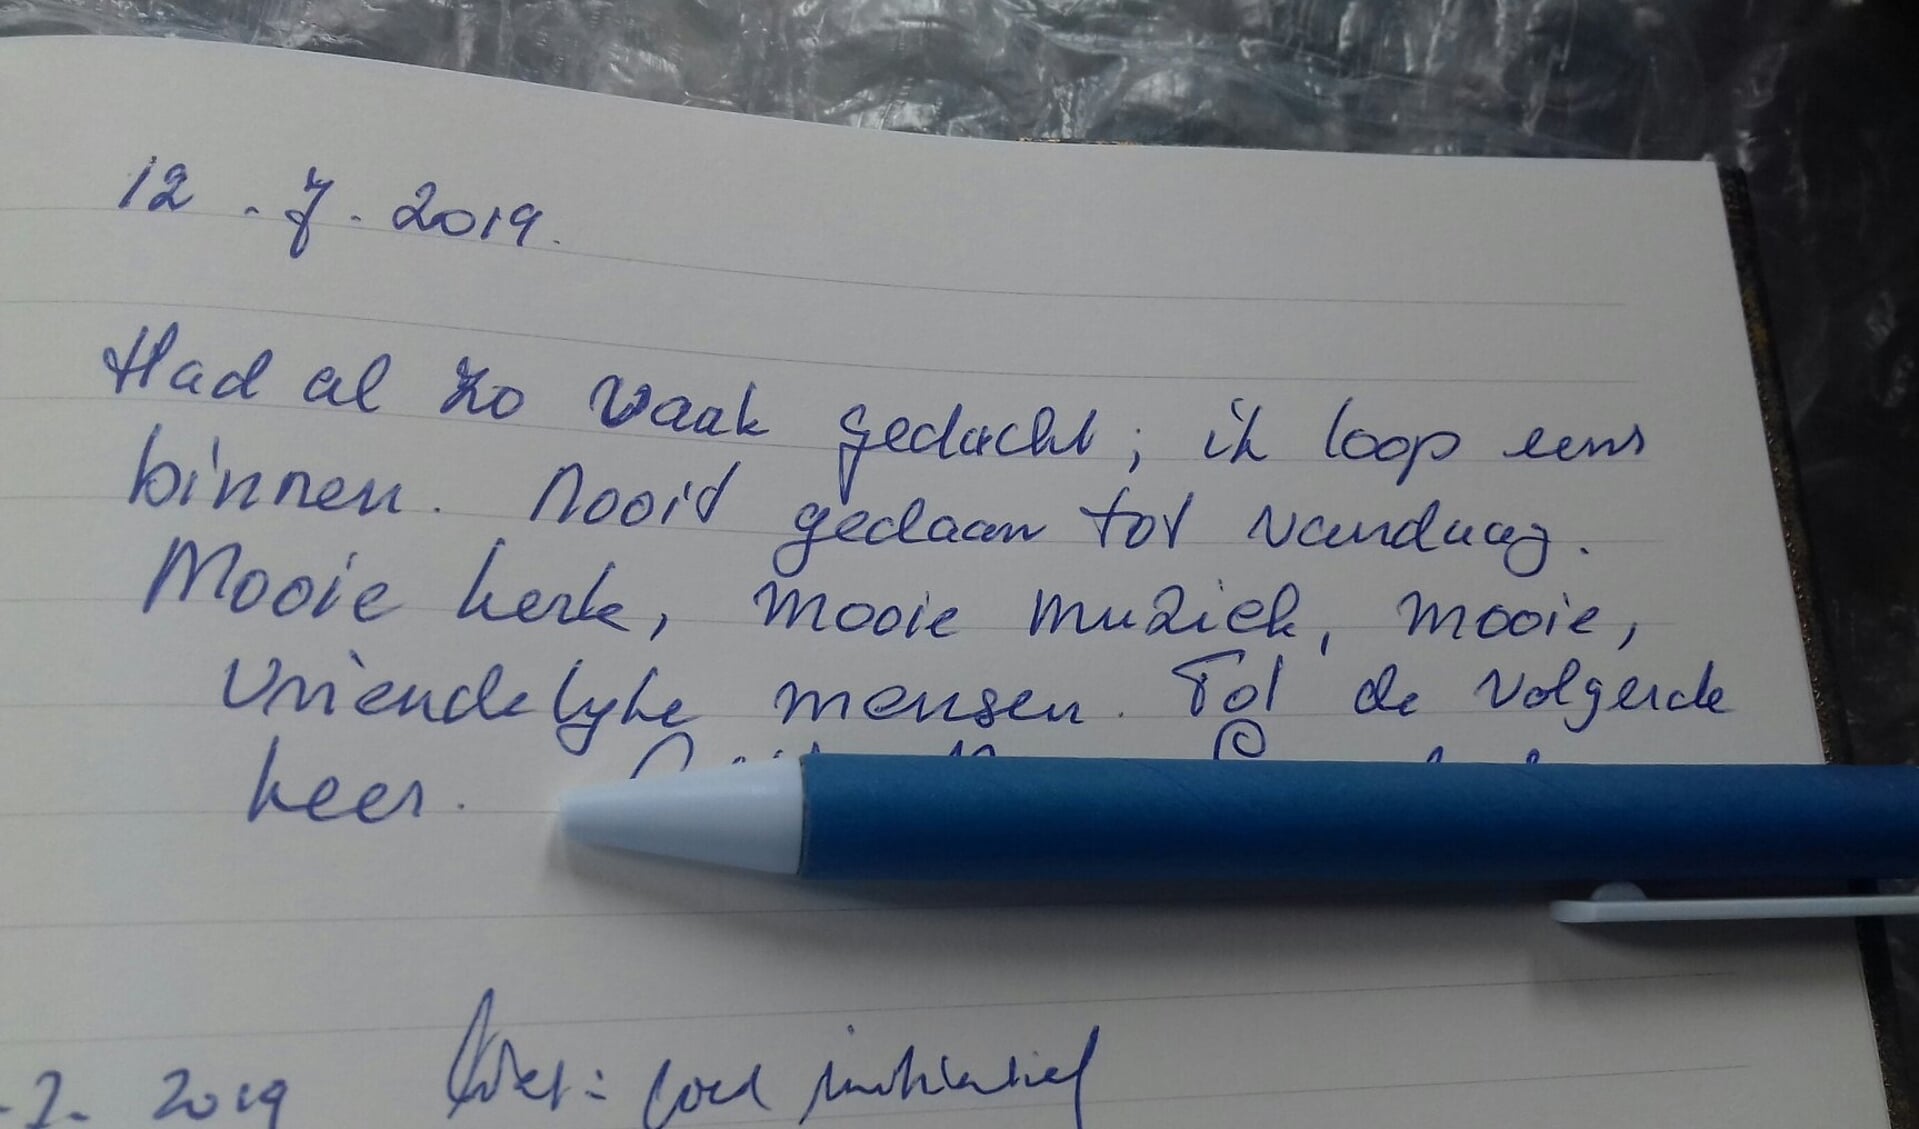 12.7.2019.
Had al zo vaak gedacht; ik loop eens
binnen. Nooit gedaan tot vandaag.
Mooie kerk, mooie muziek, mooie,
vriendelyke mensen. Tot de volgende
keer.
2019 goed initiatief